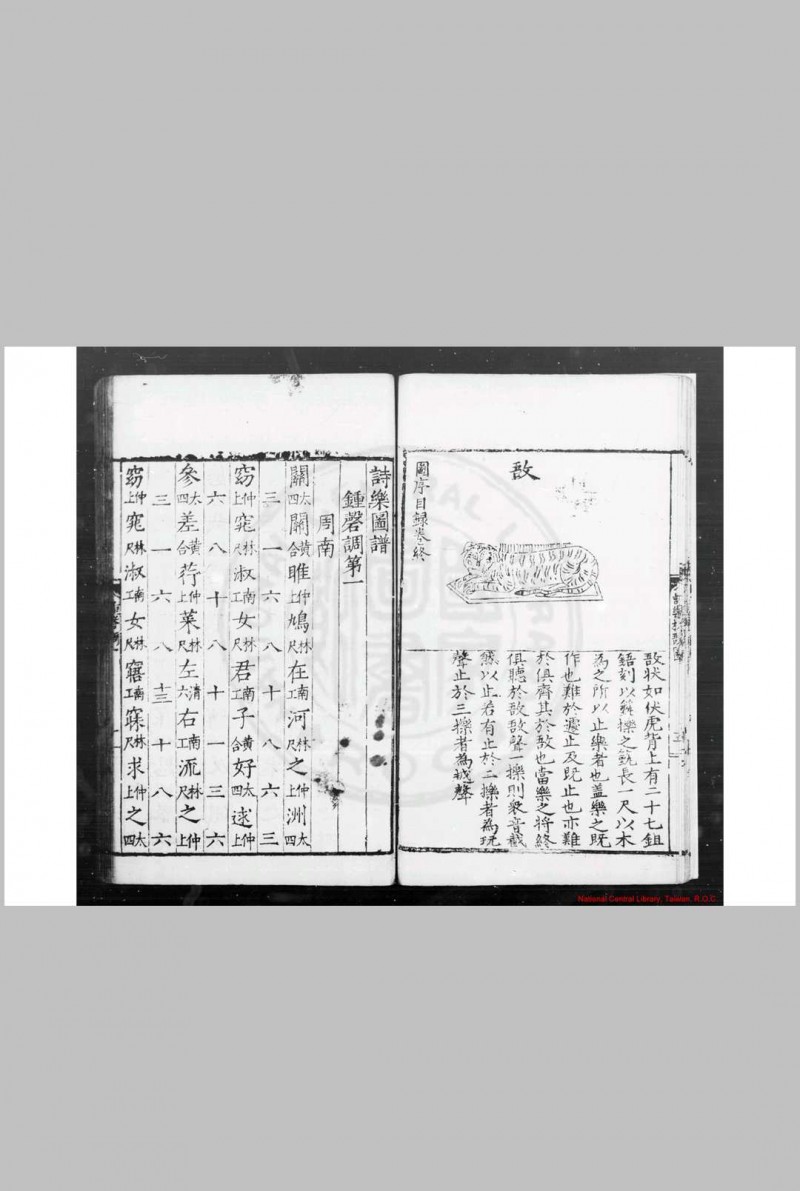 敔
敔狀如伏虎背上有二十七鉏
鋙刻以籈擽之籈長一尺以木
為之所以止樂者也蓋樂之既
作也難於遽止及既止也亦難
於俱齊其於敔也當樂之將終
俱聽於敔敔聲一擽則眾音戢
然以止若有止於二擽者為玩
聲止於三擽者為越聲
圖序目録卷終
詩樂圖譜
鍾磬調第一
周南
關太四關黃合雎仲上鳩林尺在南工河林尺之仲上洲太四
三一六八十八六三
窈仲上窕林尺淑南工女林尺君南工子黃合好太四逑仲上
六八十八十一三六
參太四差黃合荇仲上菜林尺左清六右南工流林尺之仲上
三一六八十三十八六
窈仲上窕林尺淑南工女林尺寤南工寐林尺求仲上之太四
National Central Library, Taiwan, R.O.C.